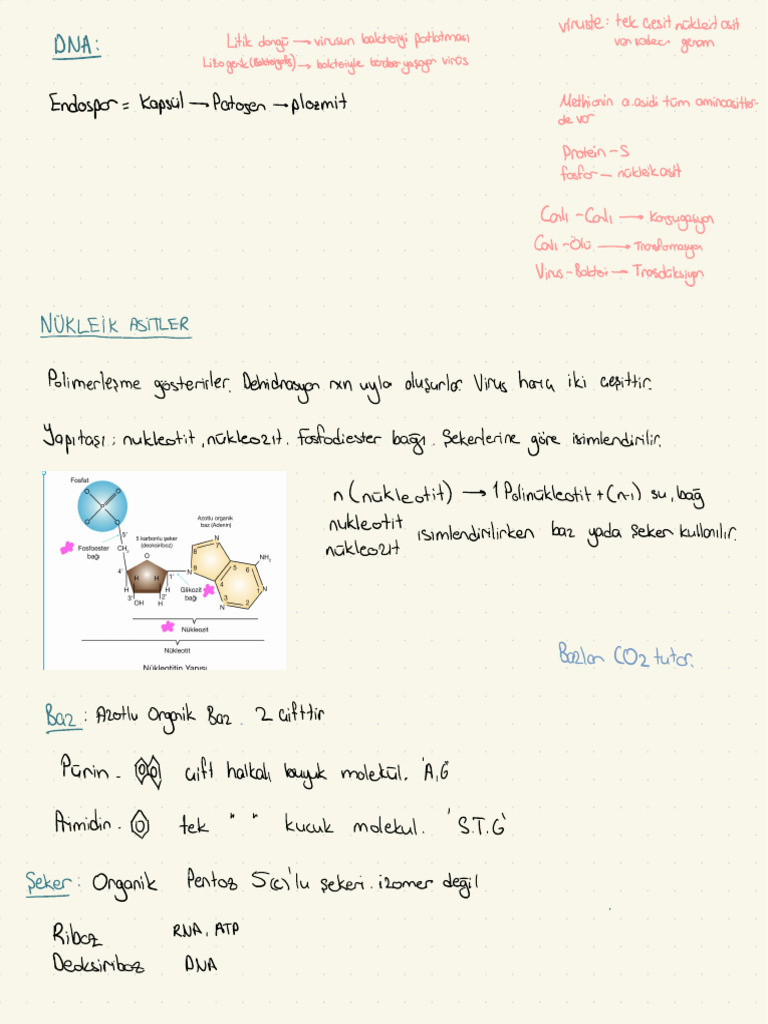 DNA:
Litik döngü → virüsün bakteriyi patlatması
Lizogenik (Bakteriyofaj) → bakteriyle beraber yaşayan virüs
Virüste: tek çeşit nükleit asit
var sadece genom
Endospor = Kapsül → Patojen → plazmit
Methionin a.asidi tüm aminoasitler-
de var
Protein - S
fosfor — nükleik asit
Canlı - Canlı → Konjugasyon
Canlı - Ölü → Transformasyon
Virüs - Bakteri → Trasdüksiyon
NÜKLEİK ASİTLER
Polimerleşme gösterirler. Dehidrasyon rxn uyla oluşurlar. Virüs hariç iki çeşittir.
Yapıtaşı: nukleotit, nükleozit. Fosfodiester bağı. Şekerlerine göre isimlendirilir.
Fosfat
O
O P O
O
5'
CH2
Fosfoester
bağı
5 karbonlu şeker
(deoksiriboz)
O
4'
H H
H H
3' 2'
OH H
1'
Glikozit
bağı
Azotlu organik
baz (Adenin)
N
7
8
5
6
NH2
9
N
4
1
N
3
2
N
Nükleozit
Nükleotit
Nükleotitin Yapısı
n (nükleotit) → 1 Polinükleotit + (n-1) su, bağ
nukleotit
nükleozit isimlendirilirken baz yada şeker kullanılır.
Bazları CO2 tutar.
Baz: Azotlu Organik Baz. 2 çifttir
Pürin - çift halkalı büyük molekül. 'A,G
Primidin - tek " " kucuk molekul. 'S.T.G'
Şeker: Organik Pentoz 5(c)'lu şekeri. izomer değil
Riboz RNA, ATP
Deoksiriboz DNA